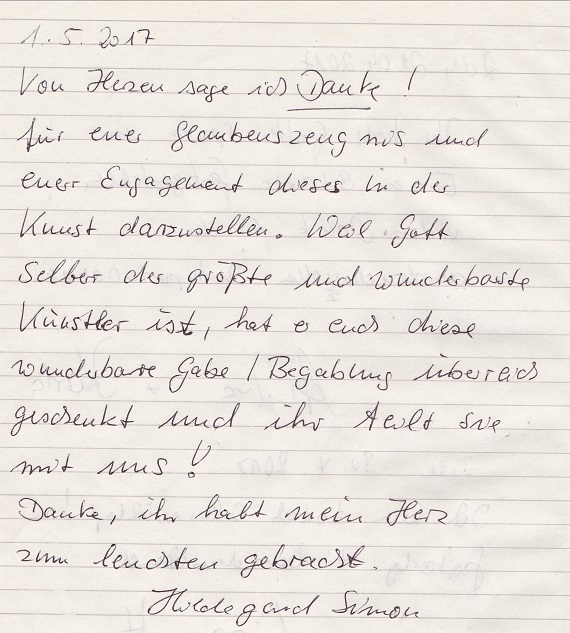 1.5.2017
Von Herzen sage ich Danke!
für euer Glaubenszeugnis und
euer Engagement dieses in der
Kunst darzustellen. Weil Gott
selber der größte und wunderbarste
Künstler ist, hat er euch diese
wunderbare Gabe / Begabung überreich
geschenkt und ihr teilt sie
mit uns!
Danke, ihr habt mein Herz
zum leuchten gebracht.
Hildegard Simon